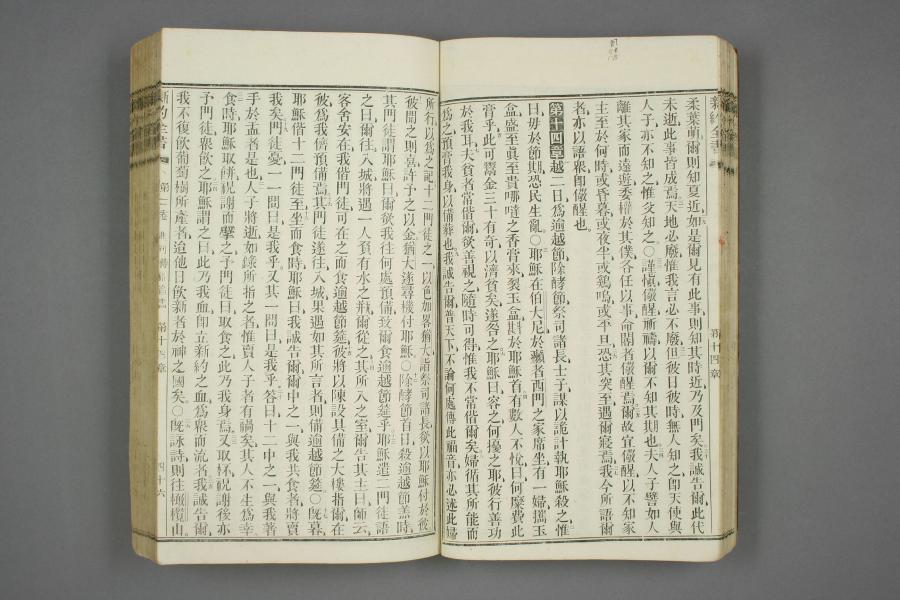 新約全書
第十四章
柔葉萌則知夏近如是爾見有此事則知其時近乃及門矣我誠告爾此代
未逝此事皆成焉天地必廢惟我言必不廢但彼日彼時無人知之卽天使與
人子亦不知之惟父知之〇謹愼儆醒祈禱以爾不知其期也夫人子譬如人
離其家而遠遊委權於其僕各任以事命閽者儆醒焉爾故宜儆醒以不知家
主至於何時或昏暮或夜半或鷄鳴或平旦恐其突至遇爾寢焉我今所語爾
者亦以語衆卽儆醒也
第十四章越二日爲逾越節除酵節祭司諸長士子謀以詭計執耶穌殺之惟
曰毋於節期恐民生亂〇耶穌在伯大尼於癩者西門之家席坐有一婦攜玉
盒盛至眞至貴哪噠之香膏來裂玉盒斟於耶穌首有數人不悅曰何糜費此
膏乎此可鬻金三十有奇以濟貧矣遂咎之耶穌曰容之何擾之耶彼行善功
於我耳夫貧者常偕爾欲善視之隨時可得惟我不常偕爾矣婦循其所能而
爲之預膏我身以備葬也我誠告爾普天下不論何處傳此福音亦必述此婦
所行以爲之記十二門徒之一以色加畧猶大詣祭司諸長欲以耶穌付於彼
彼聞之則喜許予之以金猶大遂尋機付耶穌〇除酵節首日殺逾越節羔時
其門徒謂耶穌曰爾欲我往何處預備致爾食逾越節筵乎耶穌遣二門徒語
之曰爾往入城將遇一人負有水之瓶爾從之其所入之室爾告其主曰師云
客舍安在我偕門徒可在之而食逾越節筵彼將以陳設具備之大樓指爾在
彼爲我儕預備焉其門徒遂往入城果遇如其所言者則備逾越節筵〇旣暮
耶穌偕十二門徒至坐而食時耶穌曰我誠告爾爾中之一與我共食者將賣
我矣門徒憂一一問曰是我乎又其一問曰是我乎答曰十二中之一與我著
手於盂者是也人子將逝如錄所指之者惟賣人子者有禍矣其人不生爲幸
食時耶穌取餅祝謝而擘之予門徒曰取食之此乃我身焉又取杯祝謝後亦
予門徒衆飲之耶穌謂之曰此乃我血卽立新約之血爲衆而流者我誠告爾
我不復飲葡萄樹所產者迨他日飲新者於神之國矣〇旣詠詩則往橄欖山
新約全書
第十四章
四十六